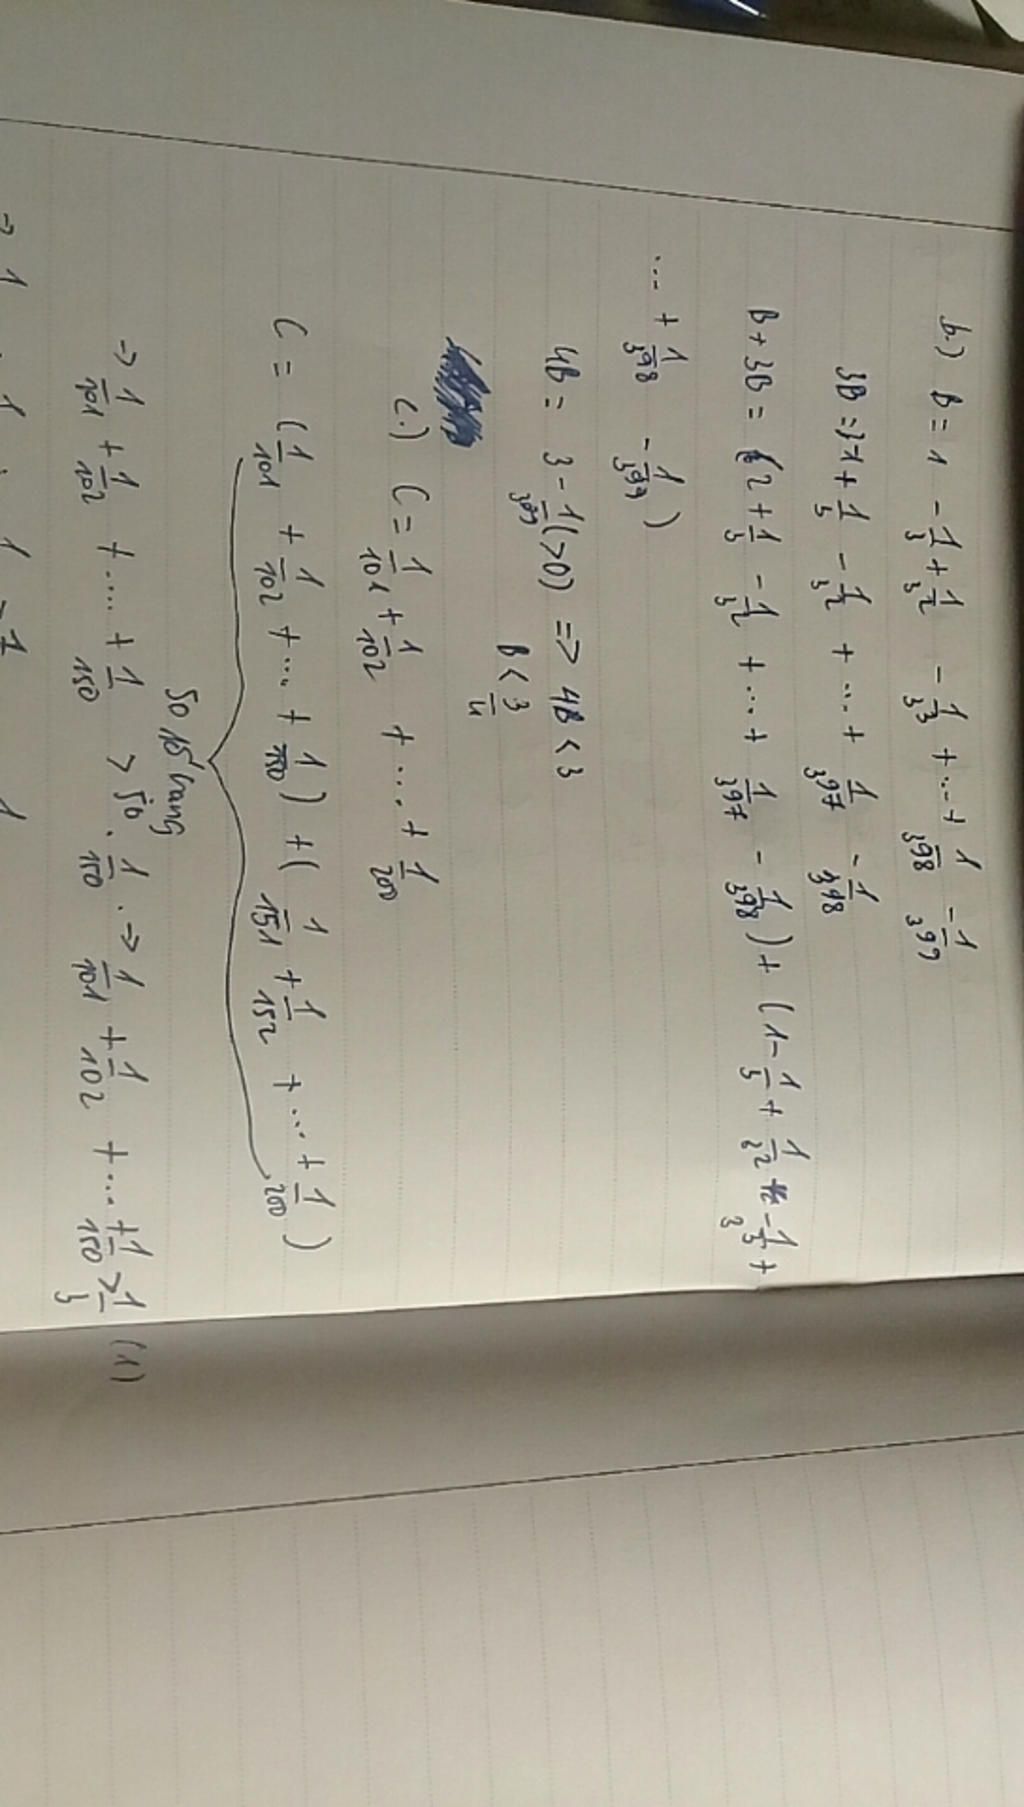 b.) B = 1 - 1/3 + 1/3² - 1/3³ + ... + 1/3⁹⁸ - 1/3⁹⁹
3B = 3-1 + 1/3 - 1/3² + ... + 1/3⁹⁷ - 1/3⁹⁸
B + 3B = (2 + 1/3 - 1/3² + ... + 1/3⁹⁷ - 1/3⁹⁸) + (1 - 1/3 + 1/3² - 1/3³ +
... + 1/3⁹⁸ - 1/3⁹⁹)
4B = 3 - 1/3⁹⁹ (>0) => 4B < 3
B < 3/4
c.) C = 1/101 + 1/102 + ... + 1/200
C = (1/101 + 1/102 + ... + 1/150) + (1/151 + 1/152 + ... + 1/200)
50 số hạng
-> 1/101 + 1/102 + ... + 1/150 > 50 . 1/150 . -> 1/101 + 1/102 + ... + 1/150 > 1/3 (1)